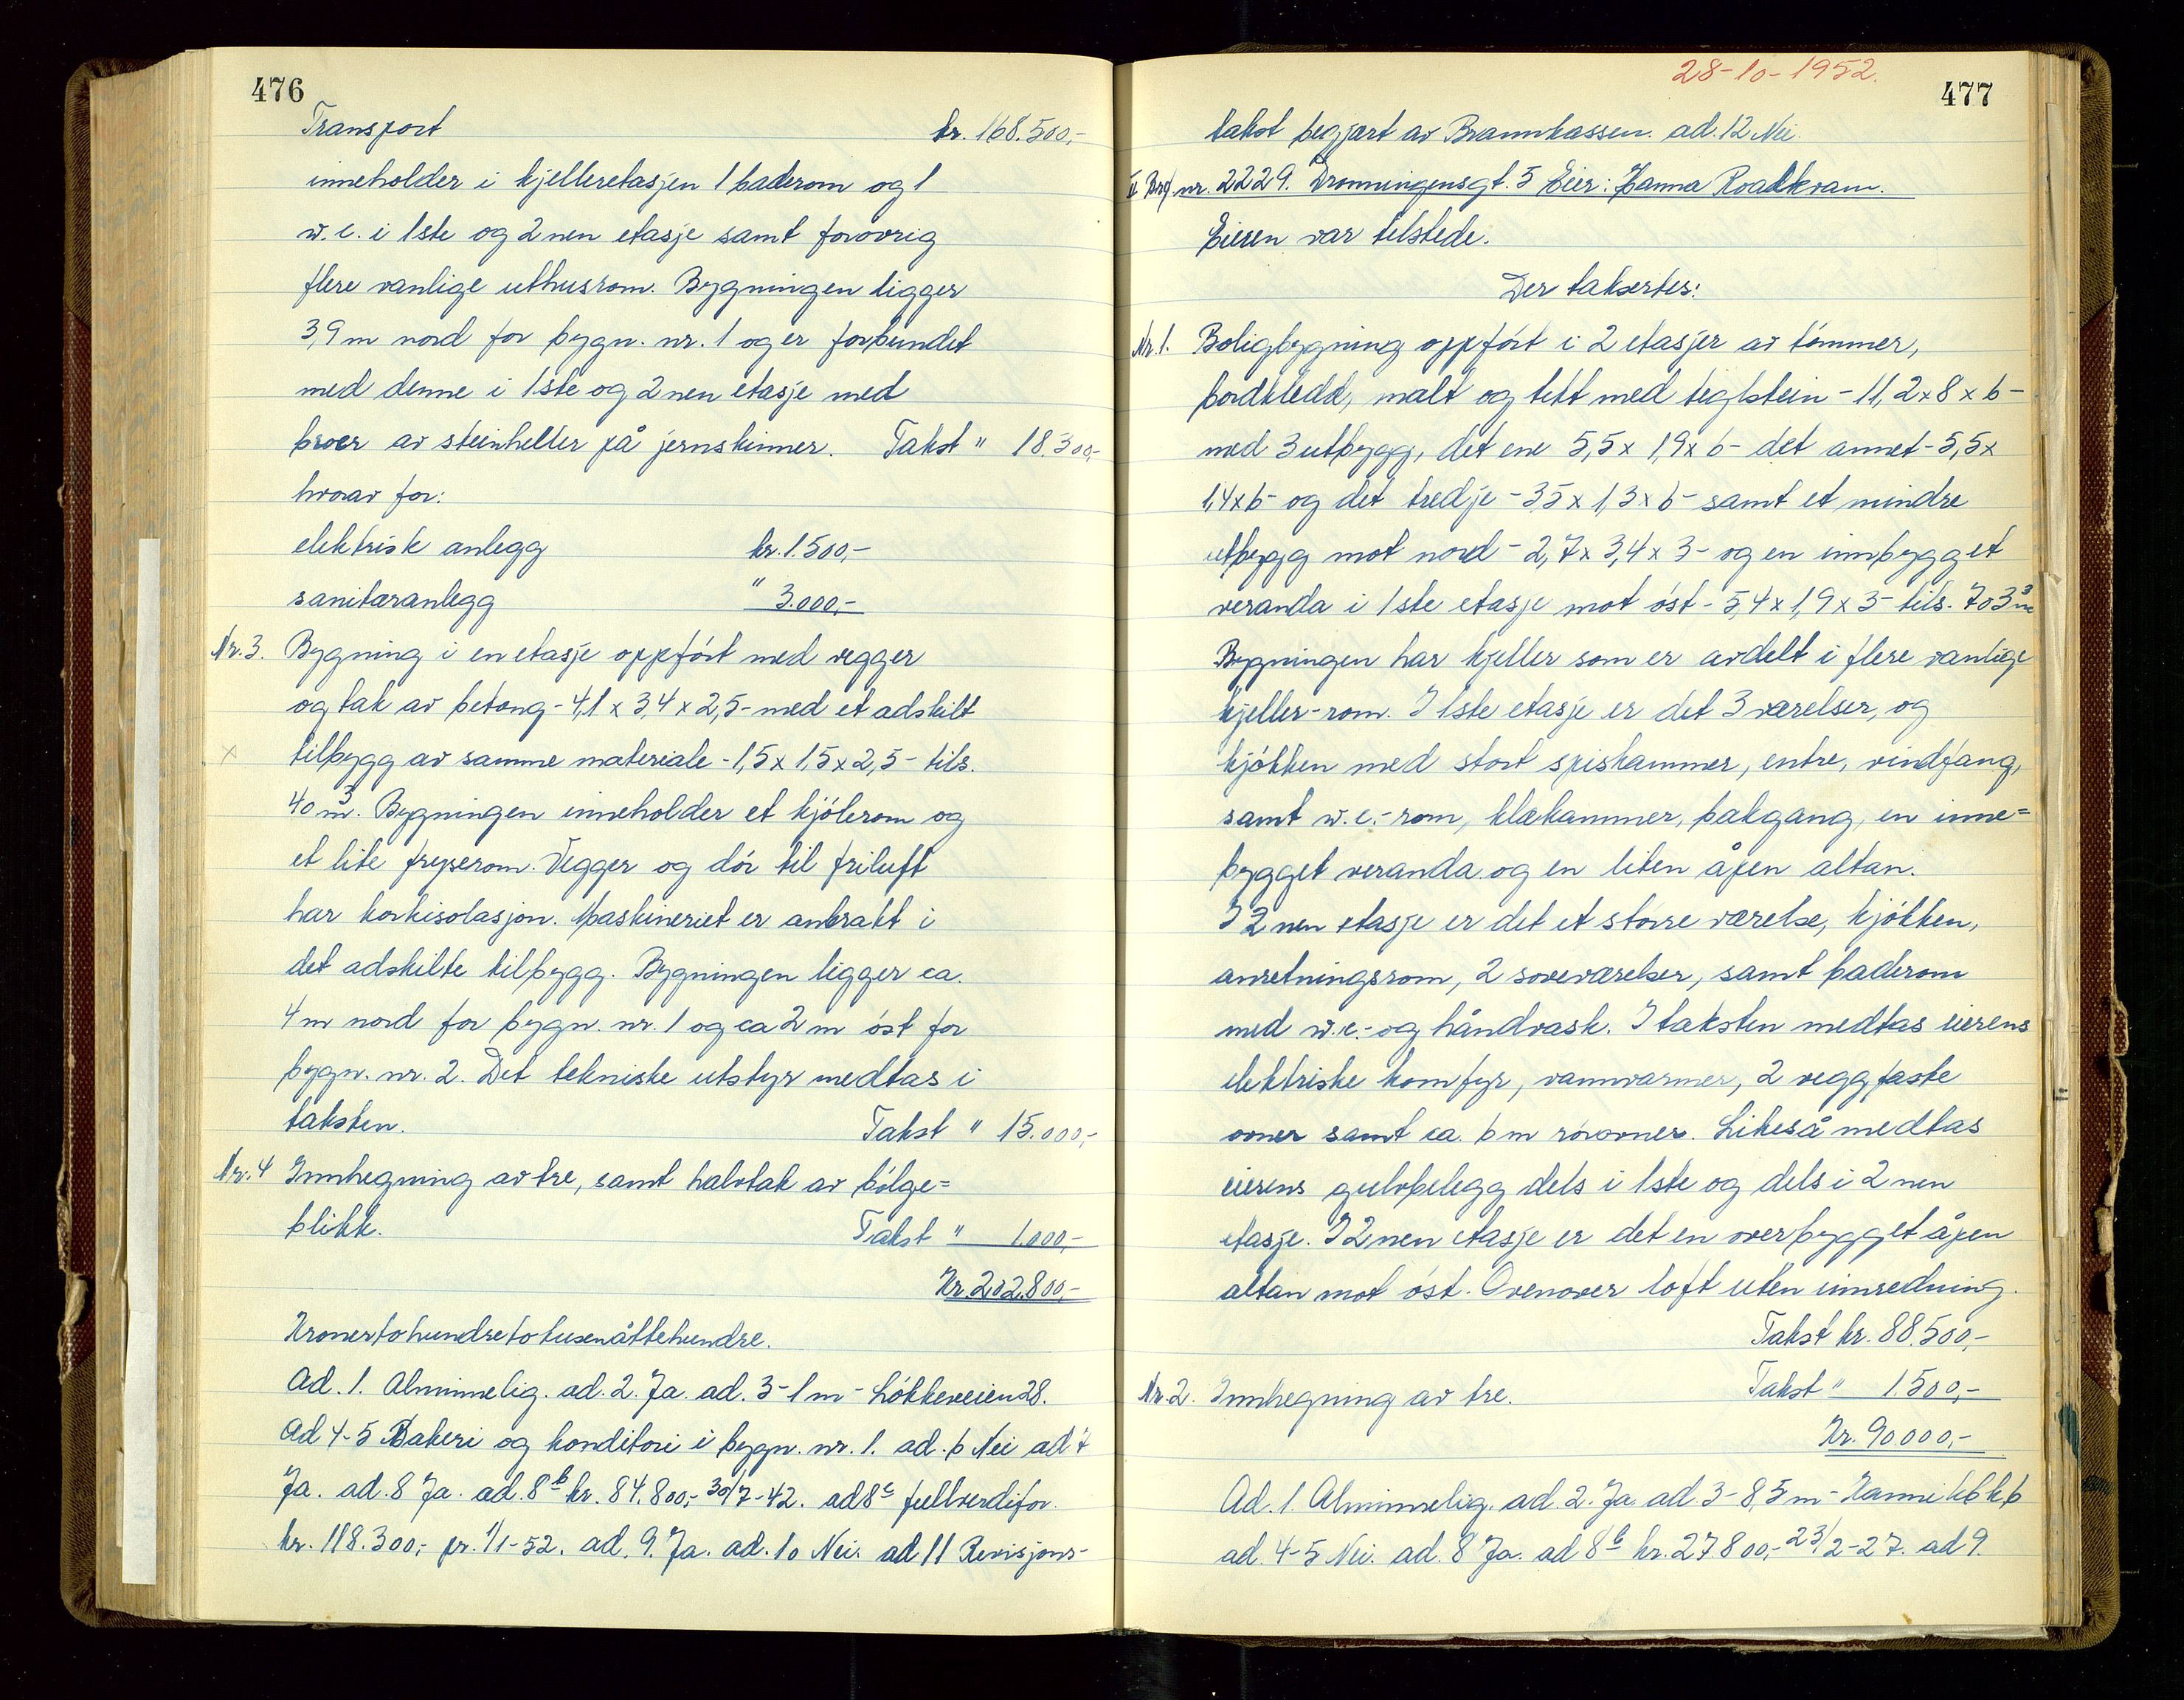 476
Transport kr. 168.500,-
inneholder i kjelleretasjen 1 baderom og 1
w.c. i 1ste og 2nen etasje samt forøvrig
flere vanlige uthusrom. Bygningen ligger
3,9 m nord for bygn. nr. 1 og er forbundet
med denne i 1ste og 2nen etasje med
broer av steinheller på jernskinner. Takst " 18.300,-
hvorav for:
elektrisk anlegg kr. 1.500,-
sanitæranlegg " 3.000,-
Nr. 3. Bygning i en etasje oppført med vegger
og tak av betong - 4,1 x 3,4 x 2,5 - med et adskilt
x tilbygg av samme materiale - 1,5 x 1,5 x 2,5 - tils.
40 m³. Bygningen inneholder et kjølerom og
et lite fryserom. Vegger og dør til friluft
har korkisolasjon. Maskineriet er anbrakt i
det adskilte tilbygg. Bygningen ligger ca.
4 m nord for bygn. nr. 1 og ca 2 m øst for
bygn. nr. 2. Det tekniske utstyr medtas i
taksten. Takst " 15.000,-
Nr. 4 Innhegning av tre, samt halvtak av bølge=
blikk. Takst " 1.000,-
Kr. 202.800,-
Kronertohundretotusenåttehundre.
Ad. 1. Alminnelig. ad. 2. Ja. ad. 3 - 1 m - Løkkeveien 28.
Ad 4-5 Bakeri og konditori i bygn. nr. 1. ad. 6 Nei ad 7
Ja. ad. 8 Ja. ad. 8b kr. 84.800,- 30/7-42. ad 8c fullverdifor.
kr. 118.300,- pr. 1/1-52. ad. 9. Ja. ad. 10 Nei. ad 11 Revisjons-
28-10-1952.
477
takst begjært av Brannkassen. ad. 12 Nei.
nr. 2229. Dronningensgt. 5 Eier: Hanna Roalkvam.
Eieren var tilstede.
Der taksertes:
Nr. 1. Boligbygning oppført i 2 etasjer av tømmer,
bordkledd, malt og tekt med teglstein - 11,2 x 8 x 6 -
med 3 utbygg, det ene 5,5 x 1,9 x 6 - det annet - 5,5 x
1,4 x 6 - og det tredje - 3,5 x 1,3 x 6 - samt et mindre
utbygg mot nord - 2,7 x 3,4 x 3 - og en innbygget
veranda i 1ste etasje mot øst - 5,4 x 1,9 x 3 - tils. 703 m³
Bygningen har kjeller som er avdelt i flere vanlige
kjeller-rom. I 1ste etasje er det 3 værelser, og
kjøkken med stort spiskammer, entre, vindfang,
samt w.c.-rom, klækammer, bakgang, en inne=
bygget veranda og en liten åpen altan.
I 2nen etasje er det et større værelse, kjøkken,
anretningsrom, 2 soveværelser, samt baderom
med w.c.- og håndvask. I taksten medtas eierens
elektriske komfyr, vannvarmer, 2 veggfaste
ovner samt ca. 6 m rørovner. Likeså medtas
eierens gulvbelegg dels i 1ste og dels i 2nen
etasje. I 2nen etasje er det en overbygget åpen
altan mot øst. Ovenover loft uten innredning.
Takst kr. 88.500,-
Nr. 2. Innhegning av tre. Takst " 1.500,-
Kr. 90.000,-
Ad. 1. Alminnelig. ad. 2. Ja ad. 3 - 8,5 m -
ad. 4-5 Nei. ad. 8 Ja. ad 8b kr. 27.800,- 23/2-27. ad 9.